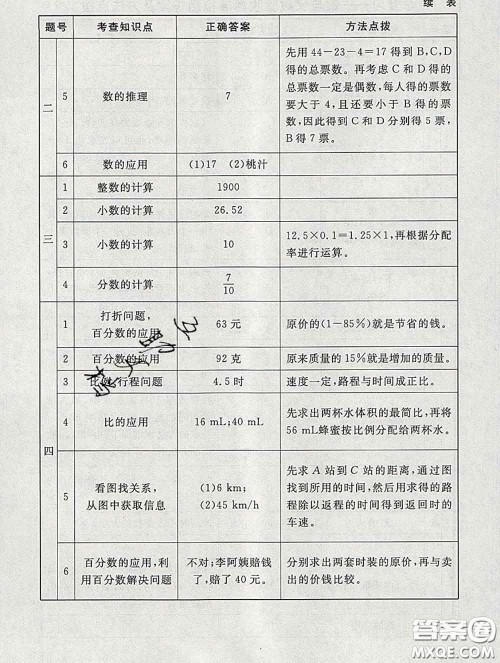 续 表
题号 考查知识点 正确答案 方法点拨
二
5 数的推理 7
先用44-23-4=17得到B,C,D
得的总票数。再考虑C和D得的
总票数一定是偶数,每人得的票数
要大于4,且还要小于B得的票
数,因此得到C和D分别得5票,
B得7票。
6 数的应用 (1)17 (2)桃汁
三
1 整数的计算 1900
2 小数的计算 26.52
3 小数的计算 10
12.5×0.1=1.25×1,再根据分配
率进行运算。
4 分数的计算 7/10
四
1 打折问题,
百分数的应用
63元 原价的(1-85%)就是节省的钱。
2 百分数的应用 92克 原来质量的15%就是增加的质量。
3 比例,行程问题 4.5时 速度一定,路程与时间成正比。
4 比的应用 16 mL;40 mL
先求出两杯水体积的最简比,再将
56 mL蜂蜜按比例分配给两杯水。
5 看图找关系,
从图中获取信息
(1)6 km;
(2)45 km/h
先求A站到C站的距离,通过图
找到所用的时间,然后用求得的路
程除以返程的时间得到返回时的
车速。
6 百分数的应用,利
用百分数解决问题
不对;李阿姨赔钱
了,赔了40元。
分别求出两套时装的原价,再与卖
出的价钱比较。
答案圈
MXQE.COM